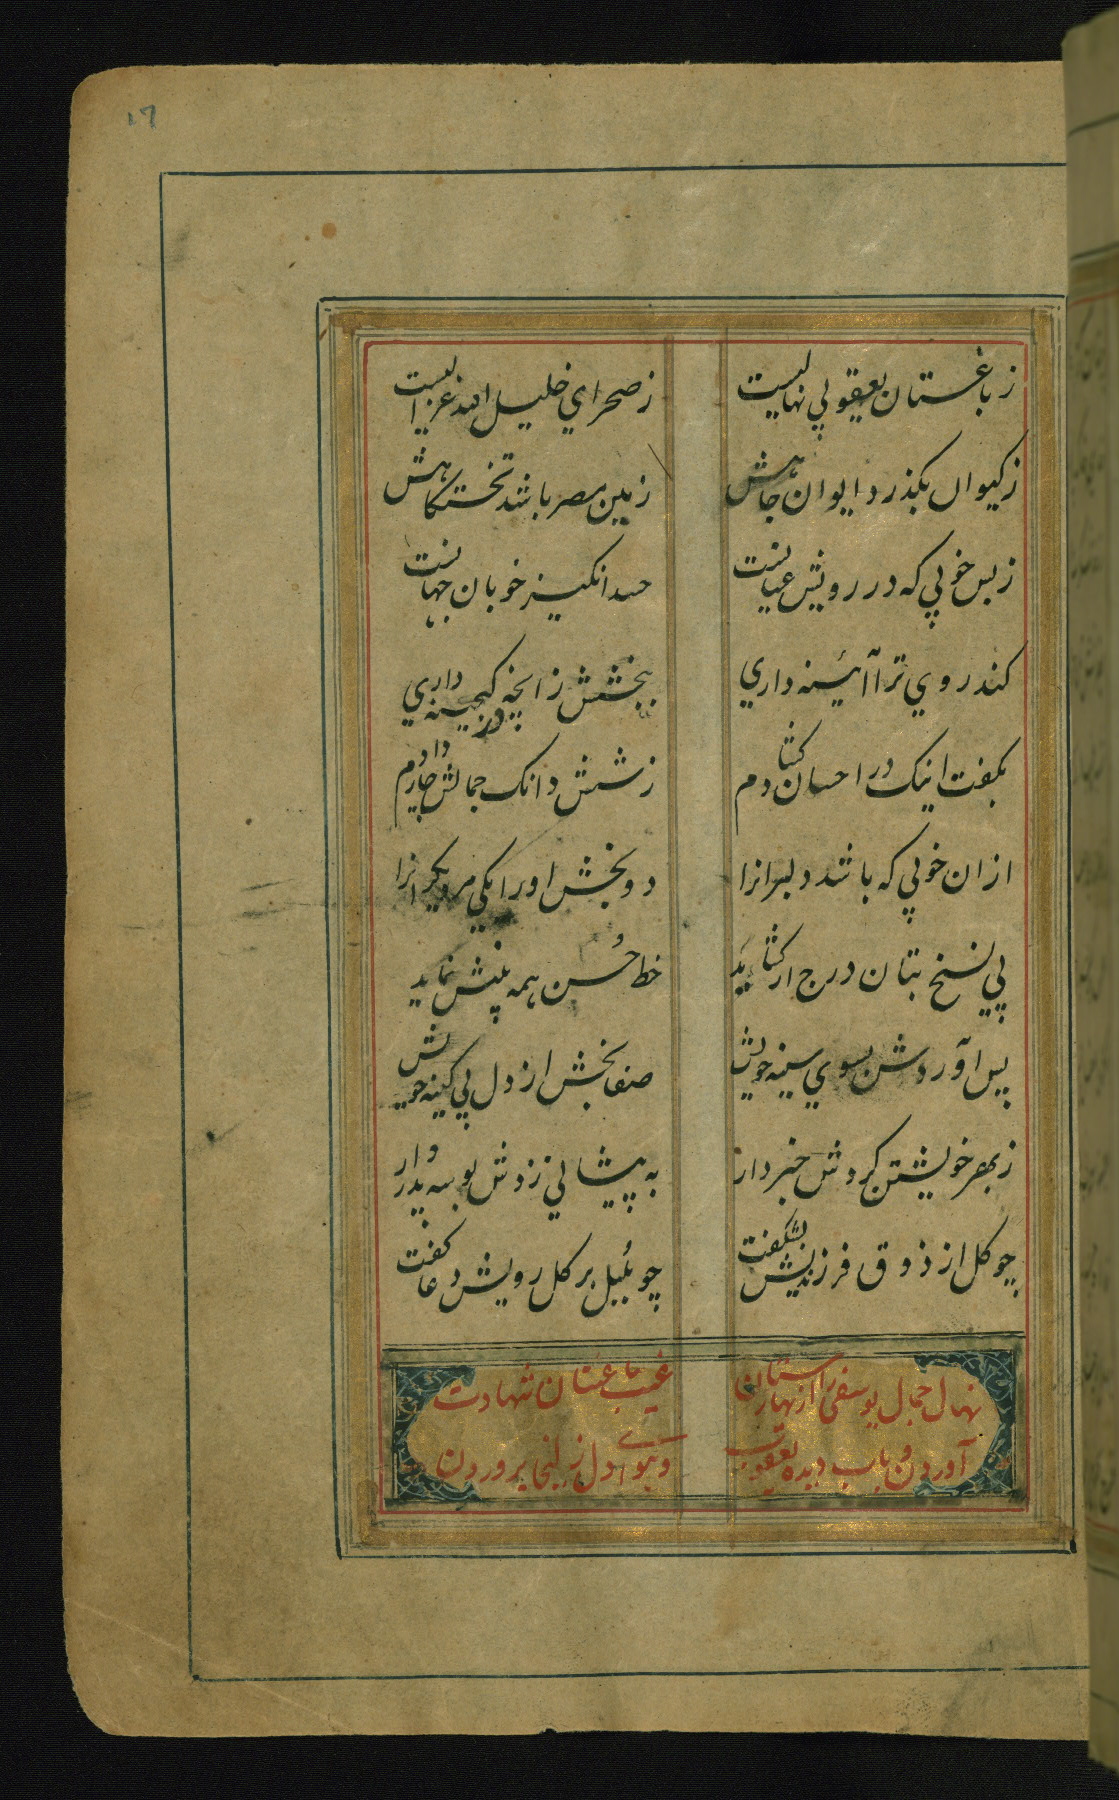 ۱۷
ز باغستان یعقوبی نهالیست
ز صحرای خلیل الله غزالیست
ز کیوان بگذرد ایوان جاهش
زمین مصر باشد تختگاهش
ز بس خوبی که در رویش عیانست
حسد انگیز خوبان جهانست
کند روی ترا آئینه داری
ببخشش زانچه در گنجینه داری
بگفت اینک در احسان گشادم
ز شش دانگ جمالش چار دادم
ازان خوبی که باشد دلبرانرا
دو بخش او را یکی مر دیگرانرا
پی نسخ بتان درج ار گشاید
خط حسن همه پیشش نماید
پس آوردش بسوی سینه خویش
صفا بخش از دل بی کینه خویش
ز مهر خویشتن کردش خبردار
به پیشانی زدش بوسه پدروار
چو گل از ذوق فرزندیش بشگفت
چو بلبل بر گل رویش دعا گفت
نهال جمال یوسفی را از بهارستان غیب بباغستان شهادت
آوردن و بآب دیده یعقوب و بهوای دل زلیخا پروردن